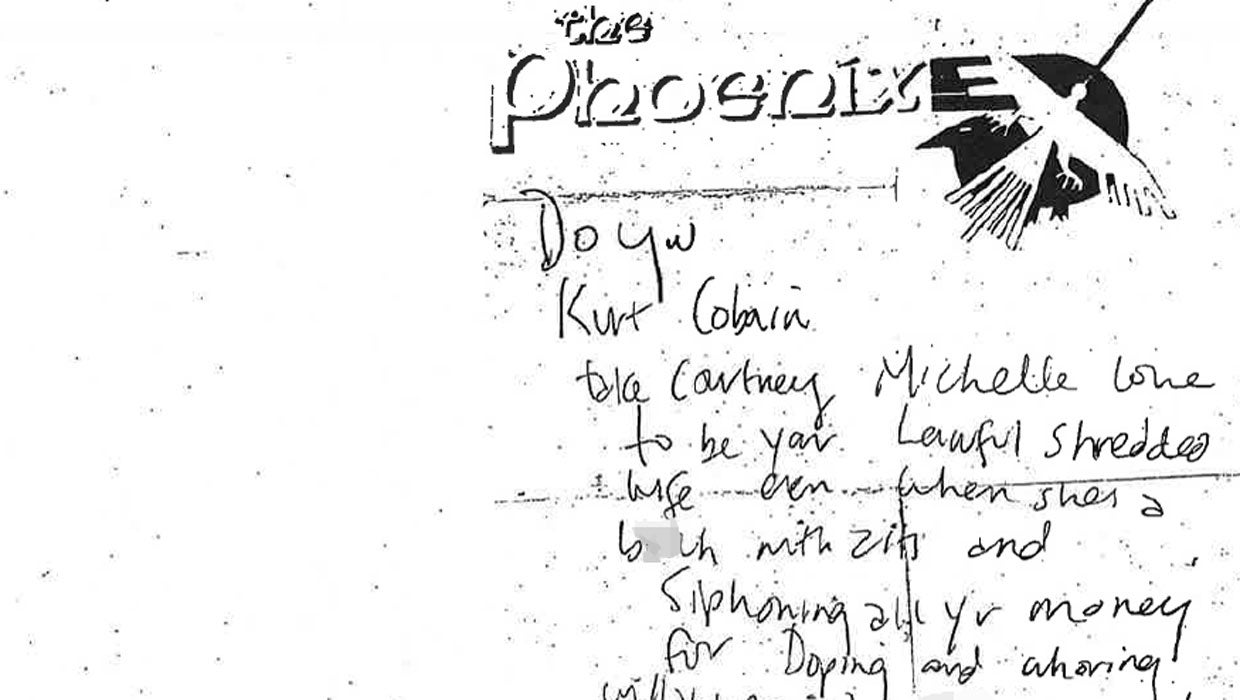 the
Phoenix
Do you
Kurt Cobain
take Courtney Michelle Love
to be your Lawful shredded
wife even when shes a
b ch with zits and
Siphoning all yr money
for Doping and whoring
will you